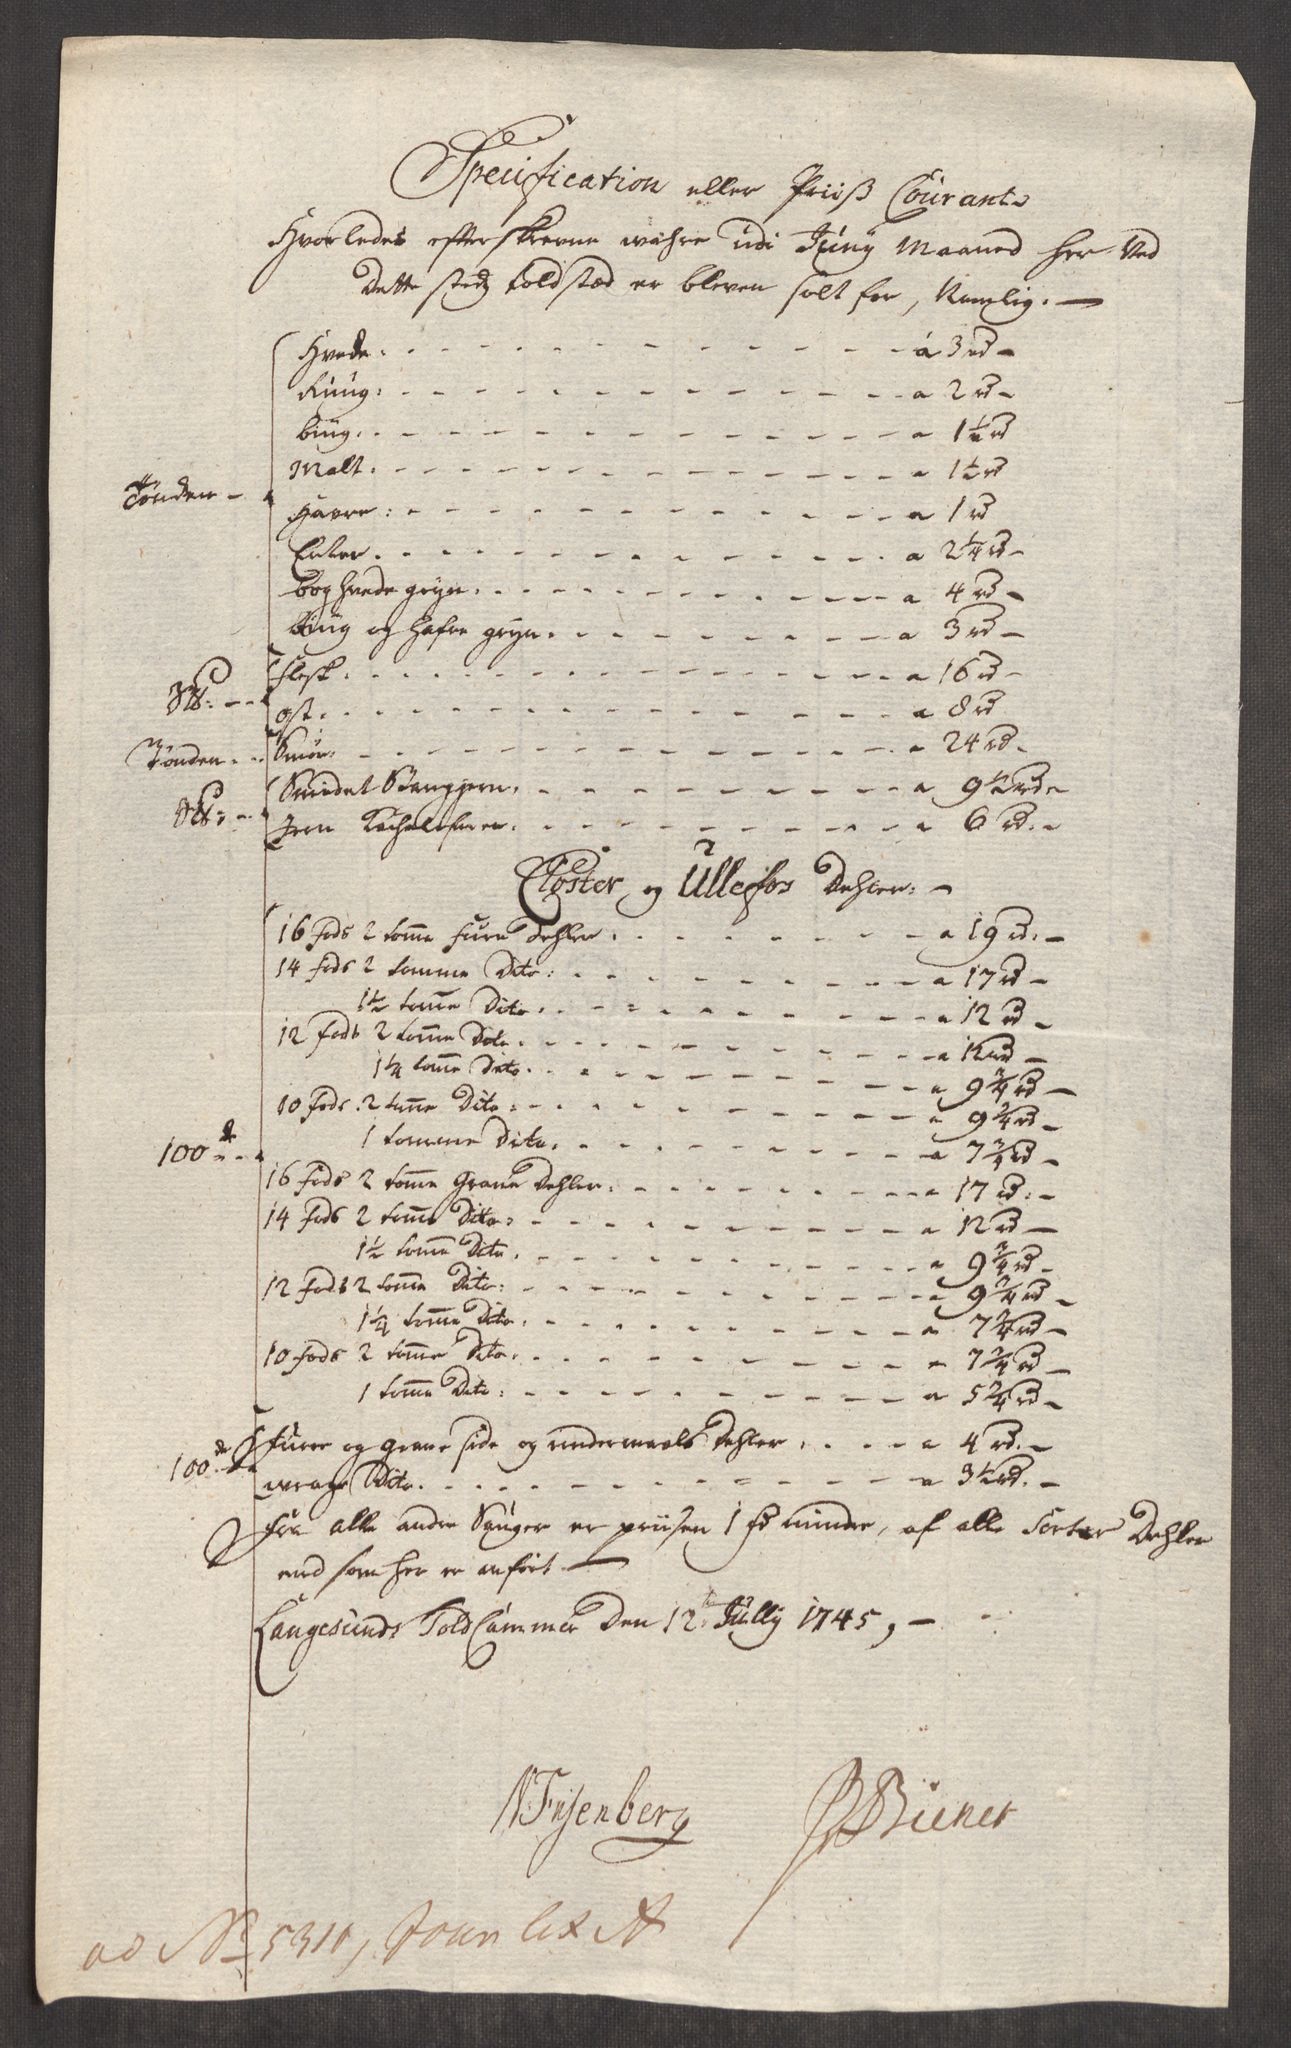 Specification eller Priiß Courant
Hvorledes efterskrevne wahre udi Juny Maaned her Ved
Dette stedz toldstæd er bleven solt for, Nemlig. —
Hvede. a 3 rd –
Rüug: a 2 rd –
biüg. a 1½ rd
Malt. a 1½ rd
Tønden – Havre: a 1 rd
Erter. a 2¼ rd –
boghvede gryn. a 4 rd –
Biüg og hafre gryn. a 3 rd –
S℔: Flesk. a 16 rd –
ost. a 8 rd
Tønden Smör: a 24 rd –
S℔: Smidet Stangjern. a 9½ rd –
Jern Kachelofner. a 6 rd. –
Closter og Ullefos Dehler: –
16 fods 2 tomme furu Dehler. a 19 rd. –
14 fods 2 tomme Dito: a 17 rd –
1½ tomme Dito. a 12 rd –
12 fods 2 tomme Dito. a 12 rd –
1¼ tomme Dito. a 9¾ rd –
10 fods 2 tomme Dito: a 9¾ rd –
100de 1 tomme Dito. a 7¾ rd –
16 fods 2 tomme Grane Dehler: a 17 rd: –
14 fods 2 tomme Dito: a 12 rd –
1½ tomme Dito. a 9¾ rd –
12 fods 2 tomme Dito: a 9¾ rd –
1¼ tomme Dito. a 7¾ rd –
10 fods 2 tomme Dito. a 7¾ rd –
1 tomme Dito: a 5¾ rd –
100de furu og Grane side og undermaals Dehler. a 4 rd. –
wrage Dito. a 3½ rd. –
fra alle andre Sauger er priisen 1 rd mindre, af alle Sorter Dehler
end som her er anført —
Langesunds Told Cammer Den 12te Jully 1745, –
N Friisenberg
Biener
ad No 5310, Journ lit A